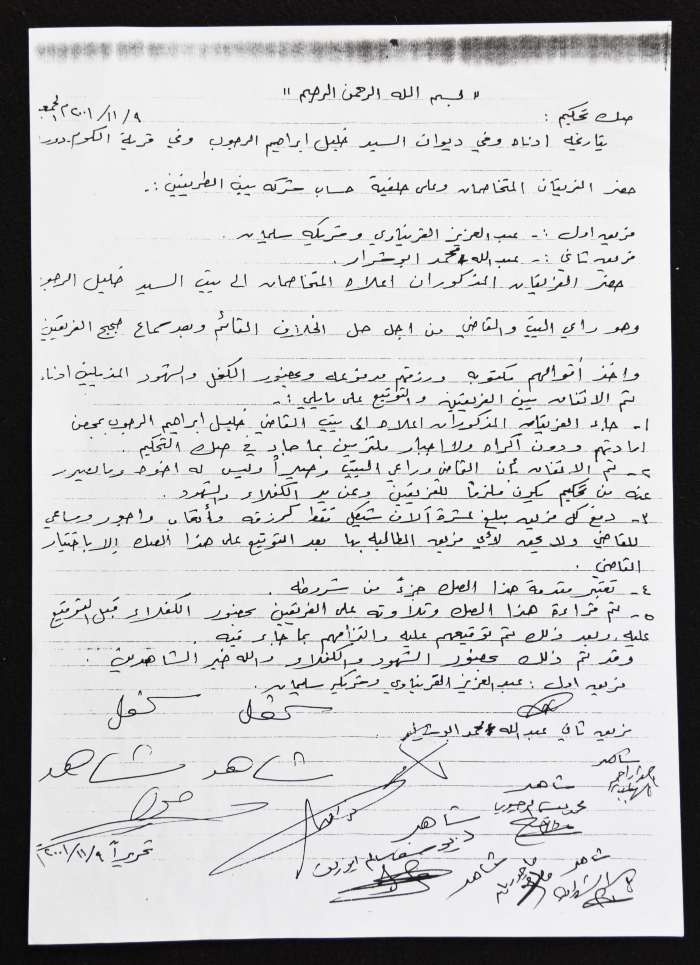 " بسم الله الرحمن الرحيم "
صك تحكيم : ٢٠٠١/١١/٩م الجمعة
بتاريخه ادناه وفي ديوان السيد خليل ابراهيم الرجوب وفي قرية الكوم دورا
حضر الفريقان المتخاصمان وعلى خلفية حساب شركه بين الطرفين :-
فريق اول :- عبد العزيز القريناوي وشريكه سليمان .
فريق ثاني :- عبد الله محمد ابو شرار .
حضر الفريقان المذكوران اعلاه المتخاصمان الى بيت السيد خليل الرجوب
وهو راعي البيت والقاضي من اجل حل الخلاف القائم وبعد سماع حجج الفريقين
واخذ أقوالهم مكتوبه ورزقتهم مدفوعه وبحضور الكفل والشهود المذيلين ادناه
تم الاتفاق بين الفريقين والتوقيع على مايلي :-
١- جاء الفريقان المذكوران اعلاه الى بيت القاضي خليل ابراهيم الرجوب بمحض
ارادتهم ودون اكراه ولا اجبار ملتزمين بما جاء في صك التحكيم .
٢- تم الاتفاق بأن القاضي وراعي البيت وحيداً وليس له اخوه وما يصدر
عنه من تحكيم يكون ملزماً للفريقين وعن يد الكفلاء والشهود .
٣- دفع كل فريق مبلغ عشرة آلاف شيكل فقط كرزقه وأتعاب واجور ومساعي
للقاضي ولا يحق لأي فريق المطالبه بها بعد التوقيع على هذا الصك إلا باختيار
القاضي .
٤- تعتبر مقدمة هذا الصك جزءً من شروطه .
٥- تم قراءة هذا الصك وتلاوته على الفريقين بحضور الكفلاء قبل التوقيع
عليه وبعد ذلك تم توقيعهم عليه والتزامهم بما جاء فيه .
وقد تم ذلك بحضور الشهود والكفلاء والله خير الشاهدين .
فريق اول : عبد العزيز القريناوي وشريكه سليمان .
كفل كفل
فريق ثاني عبد الله محمد ابو شرار
شاهد شاهد شاهد
شاهد
شاهد
تحريراً ٢٠٠١/١١/٩م
شاهد شاهد